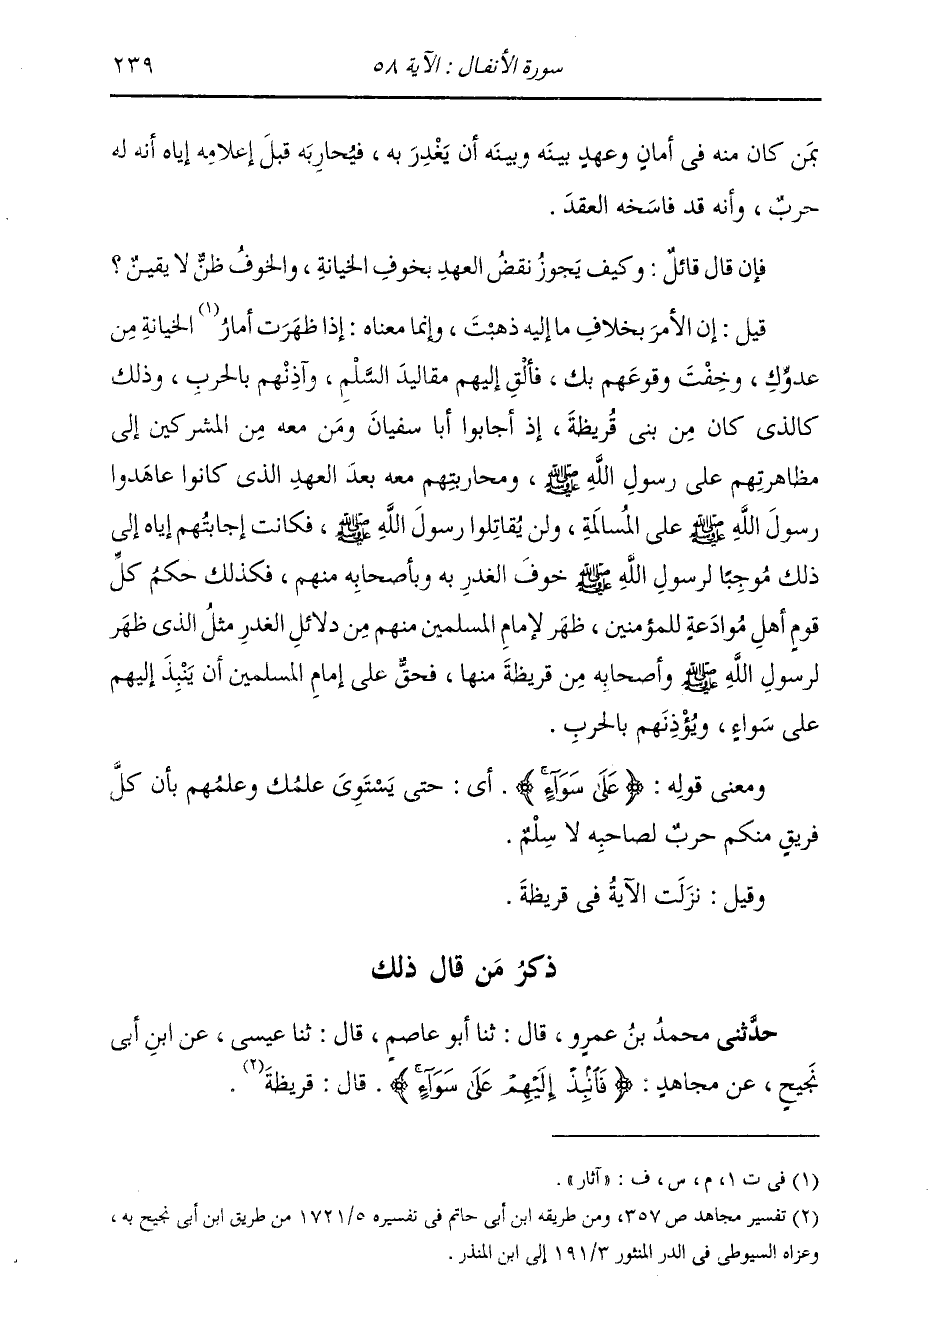 سورة الأنفال : الآية ٥٨
٢٣٩
بمَن كان منه فى أمانٍ وعهدٍ بينَه وبينَه أن يَغْدِرَ به ، فيُحارِبَه قبلَ إعلامِه إياه أنه له
حربٌ ، وأنه قد فاسَخه العقدَ .
فإن قال قائلٌ : وكيف يَجوزُ نقضُ العهدِ بخوفِ الخيانةِ ، والخوفُ ظنٌّ لا يقينٌ ؟
قيل : إن الأمرَ بخلافِ ما إليه ذهبْتَ ، وإنما معناه : إذا ظهَرَت أمارُ(١) الخيانةِ مِن
عدوِّك ، وخِفْتَ وقوعَهم بك ، فألْقِ إليهم مقاليدَ السَّلْمِ ، وآذِنْهم بالحربِ ، وذلك
كالذى كان مِن بنى قُريظةَ ، إذ أجابوا أبا سفيانَ ومَن معه مِن المشركين إلى
مظاهرتِهم على رسولِ اللَّهِ ﷺ ، ومحاربتِهم معه بعدَ العهدِ الذى كانوا عاهَدوا
رسولَ اللَّهِ ﷺ على المُسالَمةِ ، ولن يُقاتِلوا رسولَ اللَّهِ ﷺ ، فكانت إجابتُهم إياه إلى
ذلك مُوجِبًا لرسولِ اللَّهِ ﷺ خوفَ الغدرِ به وبأصحابِه منهم ، فكذلك حكمُ كلِّ
قومٍ أهلِ مُوادَعةٍ للمؤمنين ، ظهَر لإمامِ المسلمين منهم مِن دلائلِ الغدرِ مثلُ الذى ظهَر
لرسولِ اللَّهِ ﷺ وأصحابِه مِن قريظةَ منها ، فحقٌّ على إمامِ المسلمين أن يَنْبِذَ إليهم
على سَواءٍ ، ويُؤْذِنَهم بالحربِ .
ومعنى قولِه : ﴿ عَلَىٰ سَوَآءٍ ﴾ . أى : حتى يَسْتَوِىَ علمُك وعلمُهم بأن كلَّ
فريقٍ منكم حربٌ لصاحبِه لا سِلْمٌ .
وقيل : نزَلَت الآيةُ فى قريظةَ .
ذكرُ مَن قال ذلك
حدَّثنى محمدُ بنُ عمرٍو ، قال : ثنا أبو عاصمٍ ، قال : ثنا عيسى ، عن ابنِ أبى
نَجيحٍ ، عن مجاهدٍ : ﴿ فَٱنۢبِذْ إِلَيْهِمْ عَلَىٰ سَوَآءٍ ﴾ . قال : قريظةَ(٢) .
(١) فى ت ١، م ، س ، ف : «آثار» .
(٢) تفسير مجاهد ص ٣٥٧، ومن طريقه ابن أبى حاتم فى تفسيره ١٧٢١/٥ من طريق ابن أبى نجيح به ،
وعزاه السيوطى فى الدر المنثور ١٩١/٣ إلى ابن المنذر .